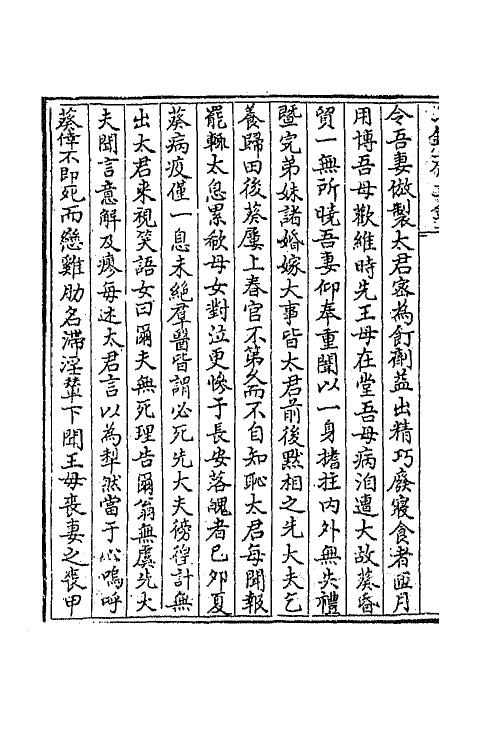 令吾妻倣製太君密為飣劑益出精巧廢寢食者匝月
用博吾母歡維時先王母在堂吾母病洎遭大故葵昏
貿一無所曉吾妻仰奉重闈以一身搘拄内外無失禮
暨完弟妹諸婚嫁大事皆太君前後默相之先大夫乞
養歸田後葵屢上春官不第久而不自知恥太君每聞報
罷輒太息累欷母女對泣更慘于長安落魄者己夘夏
葵病疫僅一息未絶羣醫皆謂必死先大夫徬徨計無
出太君来視笑語女曰爾夫無死理告爾翁無虞先大
夫聞言意解及瘳每述太君言以為犁然當于心嗚呼
葵倖不即死而戀雞肋名滯淫輦下聞王母喪妻之喪甲